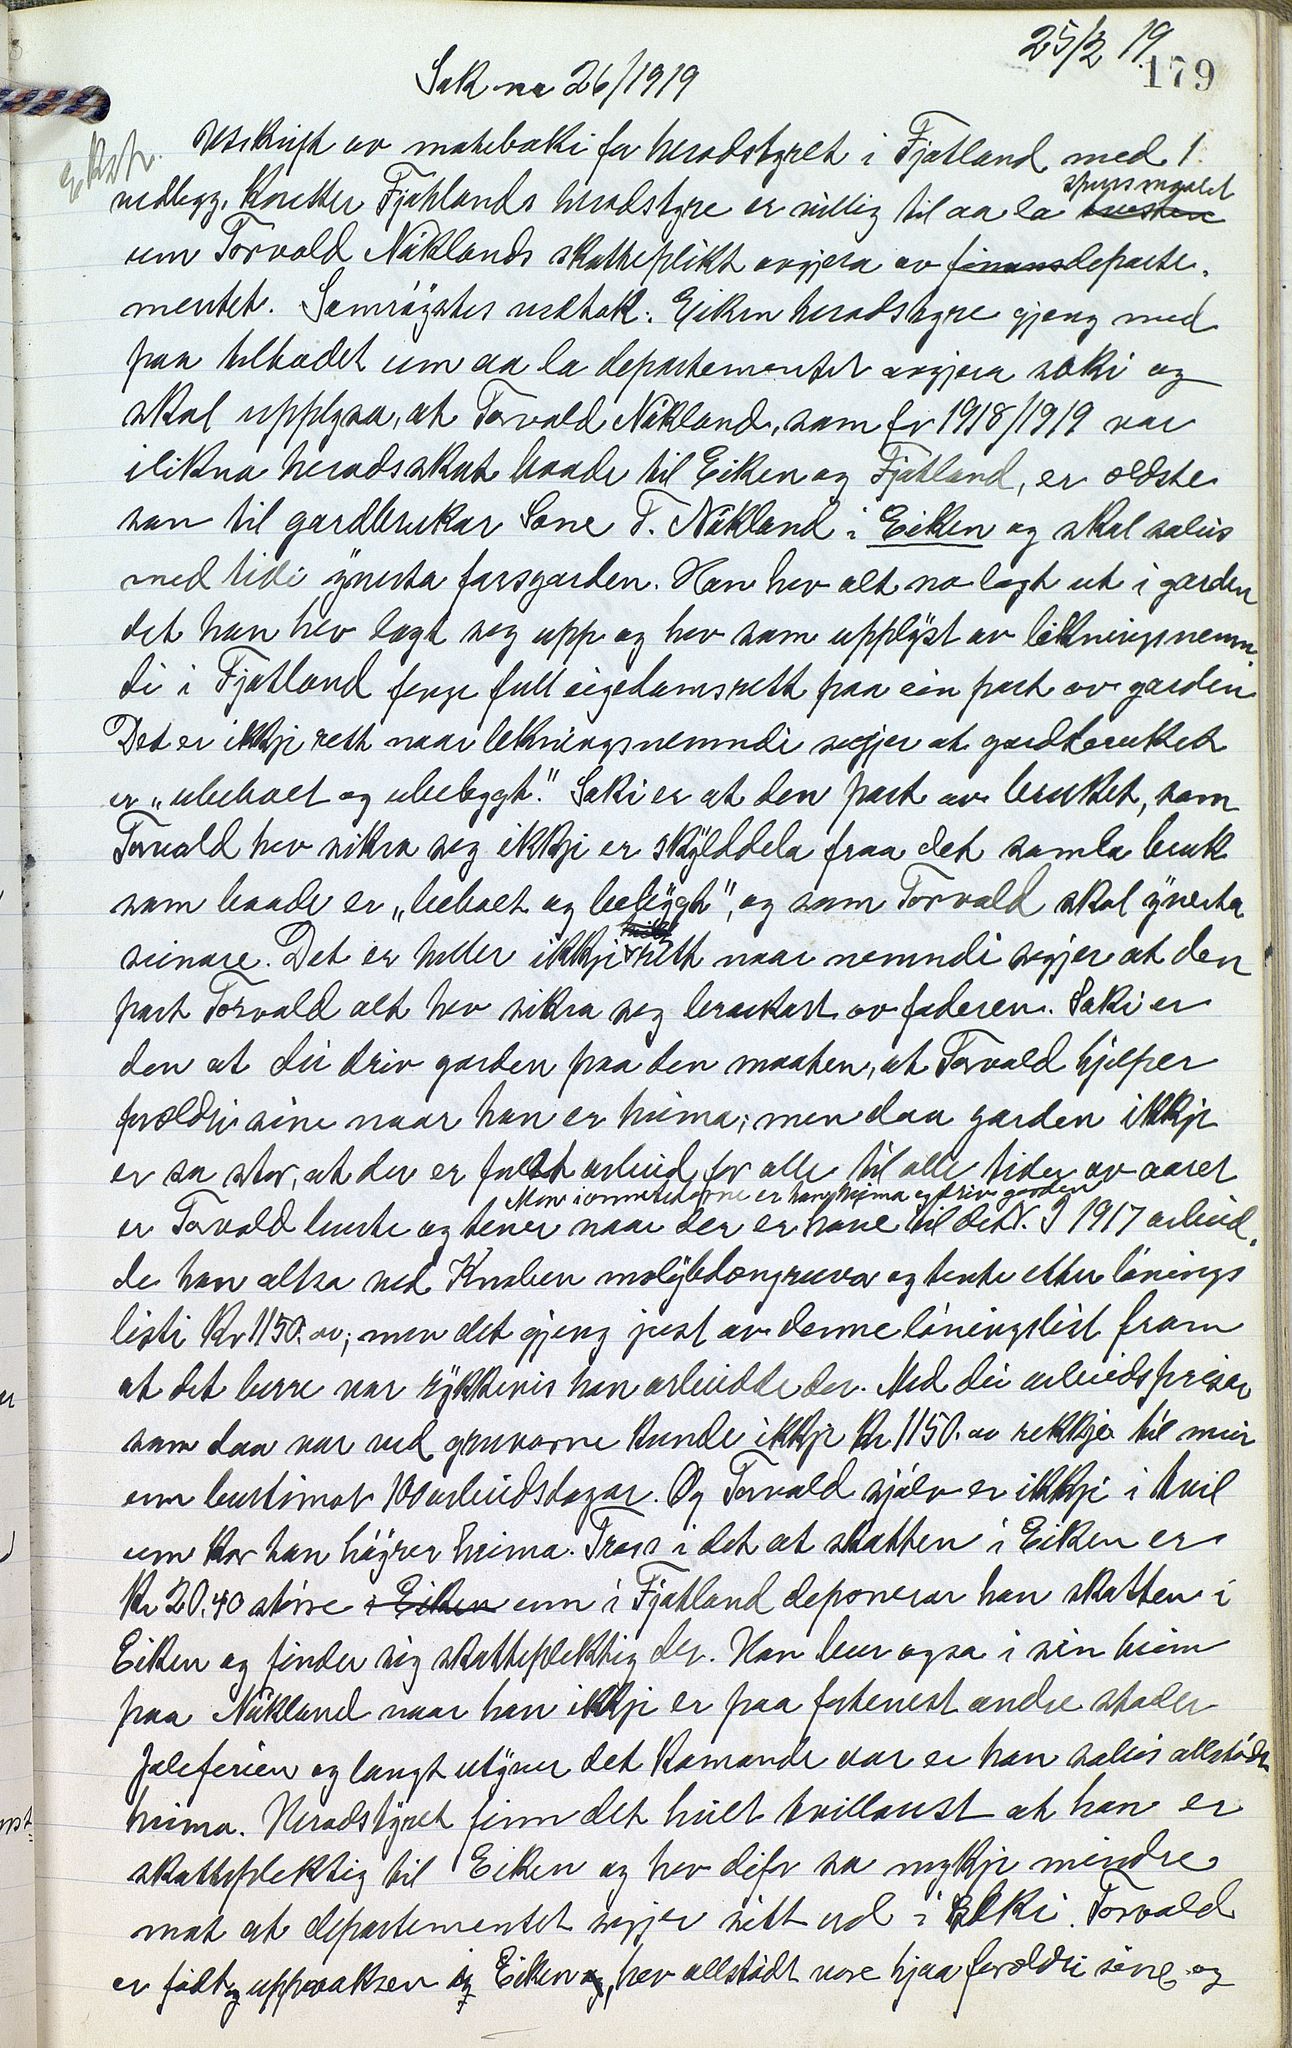 25/2 19
179
Sak nr 26/1919
Ekstr.
Utskrift av møtebøki for heradstyret i Fjotland med 1
vedlegg. Kouetter Fjotlands heradstyre er villig til aa la spursmaalet
um Torvald Nåklands skatteplikt avgjera av finansdeparte-
mentet. Samrøystes vedtok: Eiken heradstyre gjeng med
paa tilbodet um aa la departementet avgjera saki og
skal upplysa, at Torvald Nåkland, som for 1918/1919 var
ilikna heradsskat baade til Eiken og Fjotland, er eldste
son til gardbrukar Sone T. Nåkland i Eiken og skal soleis
med tidi yverta farsgarden. Han hev alt no lagt ut i garden
det han hev lagt seg upp og hev som upplyst av likningsnemn-
di i Fjotland fenge full eigedomsrett paa ein part av garden.
Det er ikkje rett naar likningsnemndi segjer at gardbruket
er "ubeboet og ubebyggt". Saki er at den part av bruket, som
Torvald hev sikra seg ikkje er skylddela fraa det samla bruk
som baade er "beboet og bebyggt", og som Torvald skal yverta
seinare. Det er heller ikkje rett naar nemndi segjer at den
part Torvald alt hev sikra seg brukast av faderen. Saki er
den at dei driv garden paa den maaten, at Torvald hjelper
foreldri sine naar han er heima; men daa garden ikkje
er so stor, at der er fullt arbeid for alle til alle tider av aaret
er Torvald burte og tener naar der er høve til det. I 1917 arbeid-
Men i onnetiderne er han heima og driv garden
de han altsa ved Knaben molybdængruva og tente etter lønings
listi Kr 1150.00; men det gjeng just av denne løningslist fram
at det berre var rykkevis han arbeidde der. Med dei arbeidsprisar
som daa var ved gruvorne kunde ikkje Kr. 1150.00 rekkje til meir
enn burtimot 100 arbeidsdagar. Og Torvald sjølv er ikkje i tvil
um kor han høyrer heima. Tross i det at skatten i Eiken er
Kr 20.40 større i Eiken enn i Fjotland deponerar han skatten i
Eiken og finder sig skattepliktig der. Han bur ogsa i sin heim
paa Nåkland naar han ikkje er paa fortenest andre stader
Joleferien og langt utyver det komande aar er han soleis allstødt
heima. Heradstyret finn det heilt tvillaust at han er
skattepliktig til Eiken og hev difor so mykje mindre
mot at departementet segjer sitt ord i saki. Torvald
er født og uppvaksen i Eiken, hev allstødt vore hjaa foreldri sine og